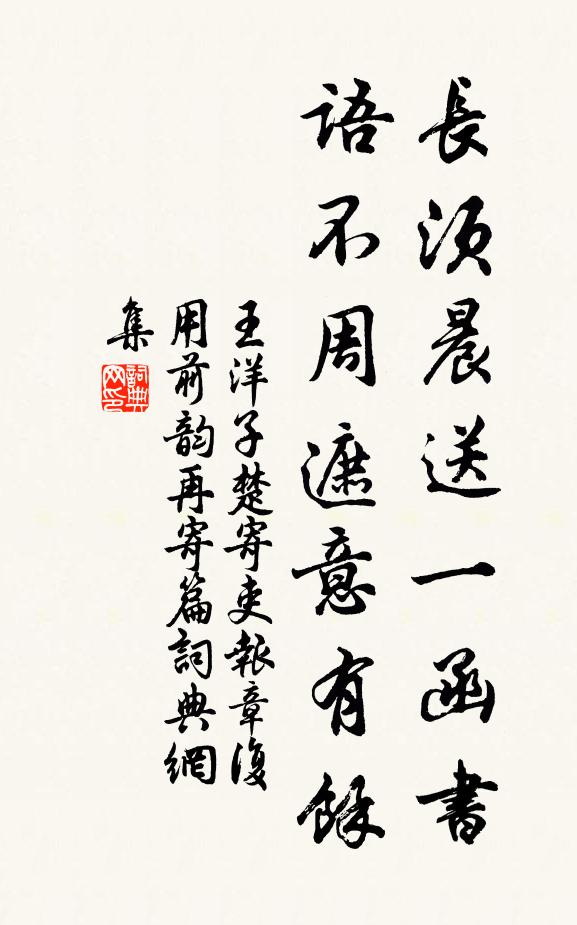 長須晨送一函書
語不周遮意有餘
王洋子楚寄吏報章復
用前韵再寄篇詞典網
集
詞典
网印